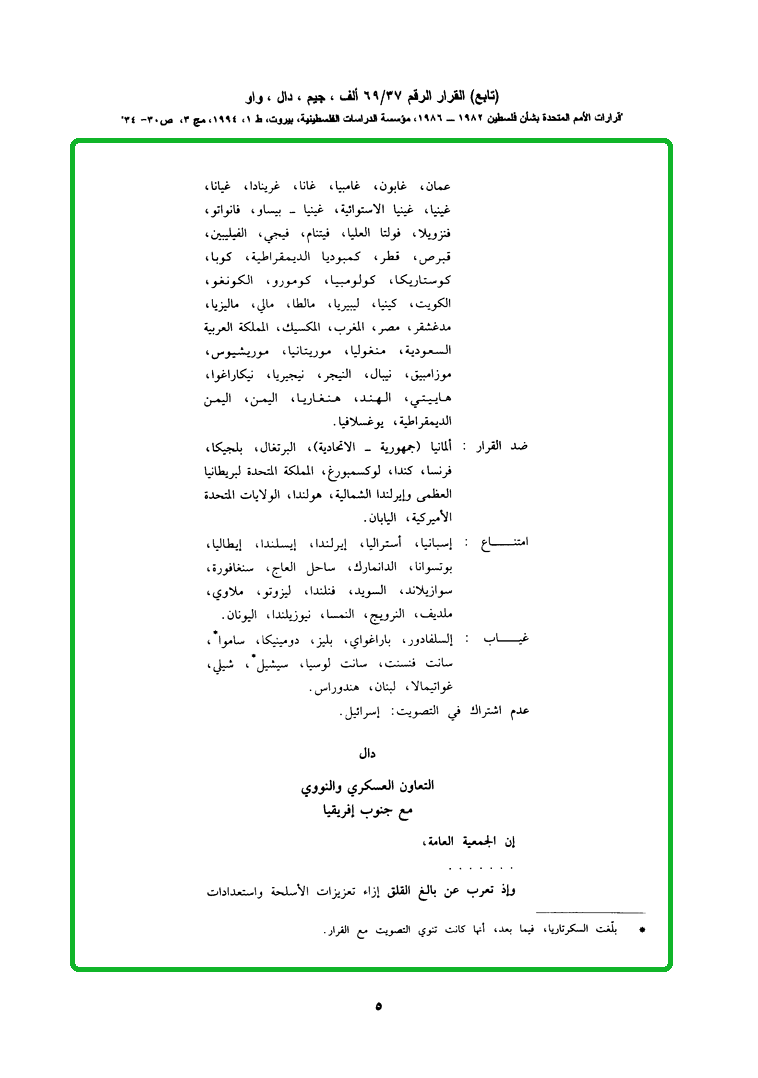 (تابع) القرار الرقم ٦٩/٣٧ ألف ، جيم ، دال ، واو
"قرارات الأمم المتحدة بشأن فلسطين ١٩٨٢ ـــ ١٩٨٦، مؤسسة الدراسات الفلسطينية، بيروت، ط ١، ١٩٩٤، مج ٣، ص٣٠- ٣٤"
عمان، غابون، غامبيا، غانا، غرينادا، غيانا،
غينيا، غينيا الاستوائية، غينيا ـ بيساو، فانواتو،
فنزويلا، فولتا العليا، فيتنام، فيجي، الفيليبين،
قبرص، قطر، كمبوديا الديمقراطية، كوبا،
كوستاريكا، كولومبيا، كومورو، الكونغو،
الكويت، كينيا، ليبيريا، مالطا، مالي، ماليزيا،
مدغشقر، مصر، المغرب، المكسيك، المملكة العربية
السعودية، منغوليا، موريتانيا، موريشيوس،
موزامبيق، نيبال، النيجر، نيجيريا، نيكاراغوا،
هاييتي، الهند، هنغاريا، اليمن، اليمن
الديمقراطية، يوغسلافيا.
ضد القرار : ألمانيا (جمهورية ـ الاتحادية)، البرتغال، بلجيكا،
فرنسا، كندا، لوكسمبورغ، المملكة المتحدة لبريطانيا
العظمى وإيرلندا الشمالية، هولندا، الولايات المتحدة
الأميركية، اليابان.
امتنـــــاع : إسبانيا، أستراليا، إيرلندا، إيسلندا، إيطاليا،
بوتسوانا، الدانمارك، ساحل العاج، سنغافورة،
سوازيلاند، السويد، فنلندا، ليزوتو، ملاوي،
ملديف، النرويج، النمسا، نيوزيلندا، اليونان.
غيـــــاب : إلسلفادور، باراغواي، بليز، دومينيكا، ساموا*،
سانت فنسنت، سانت لوسيا، سيشيل*، شيلي،
غواتيمالا، لبنان، هندوراس.
عدم اشتراك في التصويت: إسرائيل.
دال
التعاون العسكري والنووي
مع جنوب إفريقيا
إن الجمعية العامة،
. . . . . . .
وإذ تعرب عن بالغ القلق إزاء تعزيزات الأسلحة واستعدادات
* بلّغت السكرتاريا، فيما بعد، أنها كانت تنوي التصويت مع القرار.
٥